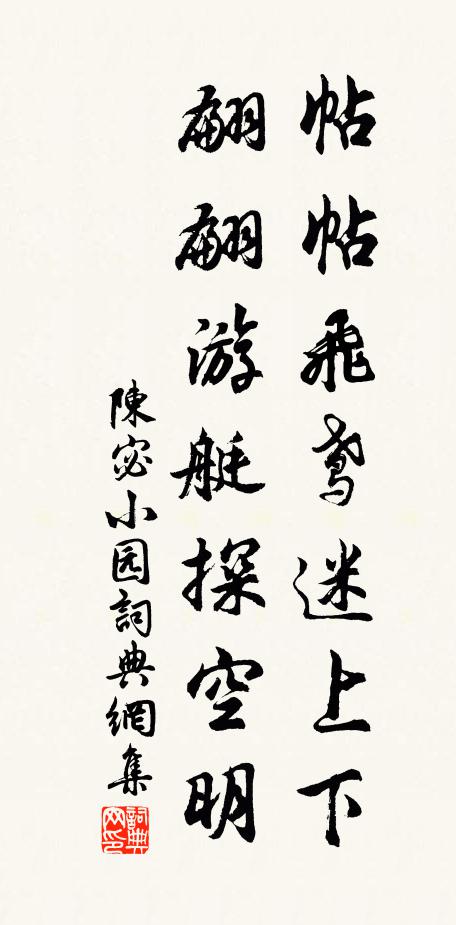 帖帖飛鸢迷上下
翩翩游艇探空明
陳宓小园詞典網集
詞典网印